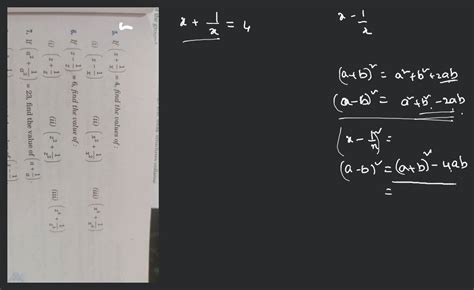 5. If (x + 1/x) = 4, find the values of :
(i) (x - 1/x) (ii) (x² + 1/x²) (iii) (x⁴ + 1/x⁴)
6. If (z - 1/z) = 6, find the value of :
(i) (z + 1/z) (ii) (z² + 1/z²) (iii) (z⁴ + 1/z⁴)
7. If (a² + 1/a²) = 23, find the value of (a + 1/a)
x + 1/x = 4
x - 1/x
(a+b)² = a²+b²+2ab
(a-b)² = a²+b²-2ab
(x - 1/x)² =
(a-b)² = (a+b)² - 4ab
=